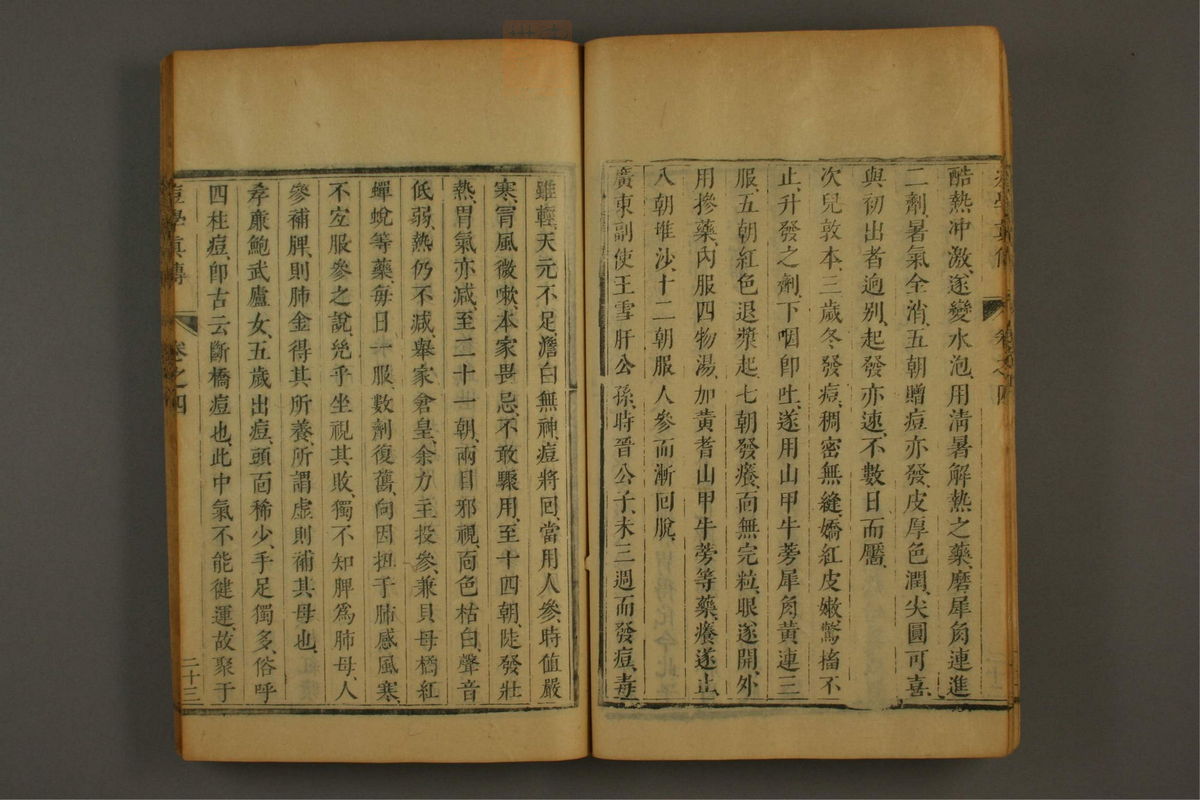 酷熱冲激、遂變水泡、用淸暑解熱之藥、磨犀角連進
二劑、暑氣全消、五朝贈痘亦發、皮厚色潤、尖圓可喜、
與初出者逈别、起發亦速、不數日而靨、
次兒敦本、三歲冬發痘、稠密無縫、嬌紅皮嫩、驚搐不
止、升發之劑、下咽卽吐、遂用山甲牛蒡犀角黃連三
服、五朝紅色退漿起、七朝發癢、面無完粒、眼遂開、外
用摻藥、內服四物湯、加黃耆山甲牛蒡等藥、癢遂止、
八朝堆沙、十二朝服人參而漸囘脫、
廣東副使王雪肝公孫、時晉公子、未三週而發痘、毒
雖輕、天元不足、澹白無神、痘將囘當用人參、時值嚴
寒、冐風微嗽、本家畏忌、不敢驟用、至十四朝、陡發壯
熱、胃氣亦减、至二十一朝、兩目邪視、面色枯白、聲音
低弱、熱仍不减、舉家倉皇、余力主投參、兼貝母橘紅
蟬蛻等藥、每日一服、數劑復舊、向因拘于肺感風寒、
不宐服參之說、㡬乎坐視其敗、獨不知脾爲肺母、人
參補脾、則肺金得其所養、所謂虛則補其母也、
孝亷鮑武廬女、五歲出痘、頭面稀少、手足獨多、俗呼
四柱痘、卽古云斷橋痘也、此中氣不能徤運、故聚于
痘學眞傳
卷之四
二十三